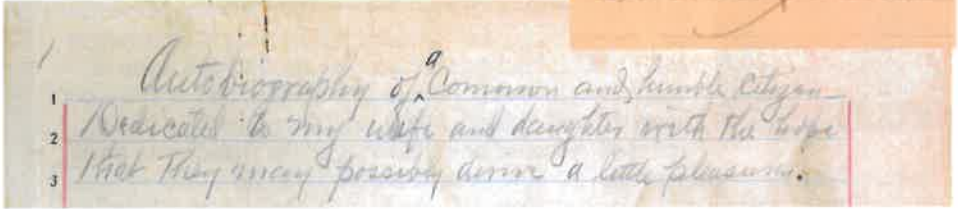 Autobiography of a Common and humble Citizen
1 Dedicated to my wife and daughter with the hope
2 that they may possibly derive a little pleasure.
3